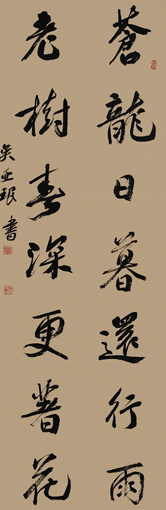 蒼龍日暮還行雨
老樹春深更著花
吳亚珉書